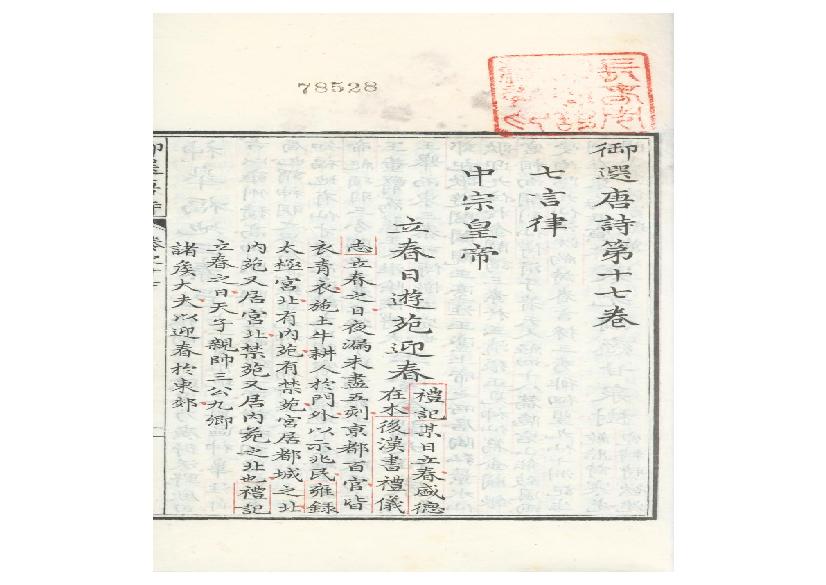 78528
御選唐詩第十七卷
七言律
中宗皇帝
立春日遊苑迎春
禮記某日立春盛德
在木後漢書禮儀
志立春之日夜漏未盡五刻京都百官皆
衣青衣施土牛耕人於門外以示兆民雍録
太極宮北有內苑有禁苑宮居都城之北
內苑又居宮北禁苑又居內苑之北也禮記
立春之日天子親帥三公九卿
諸矦大夫以迎春於東郊